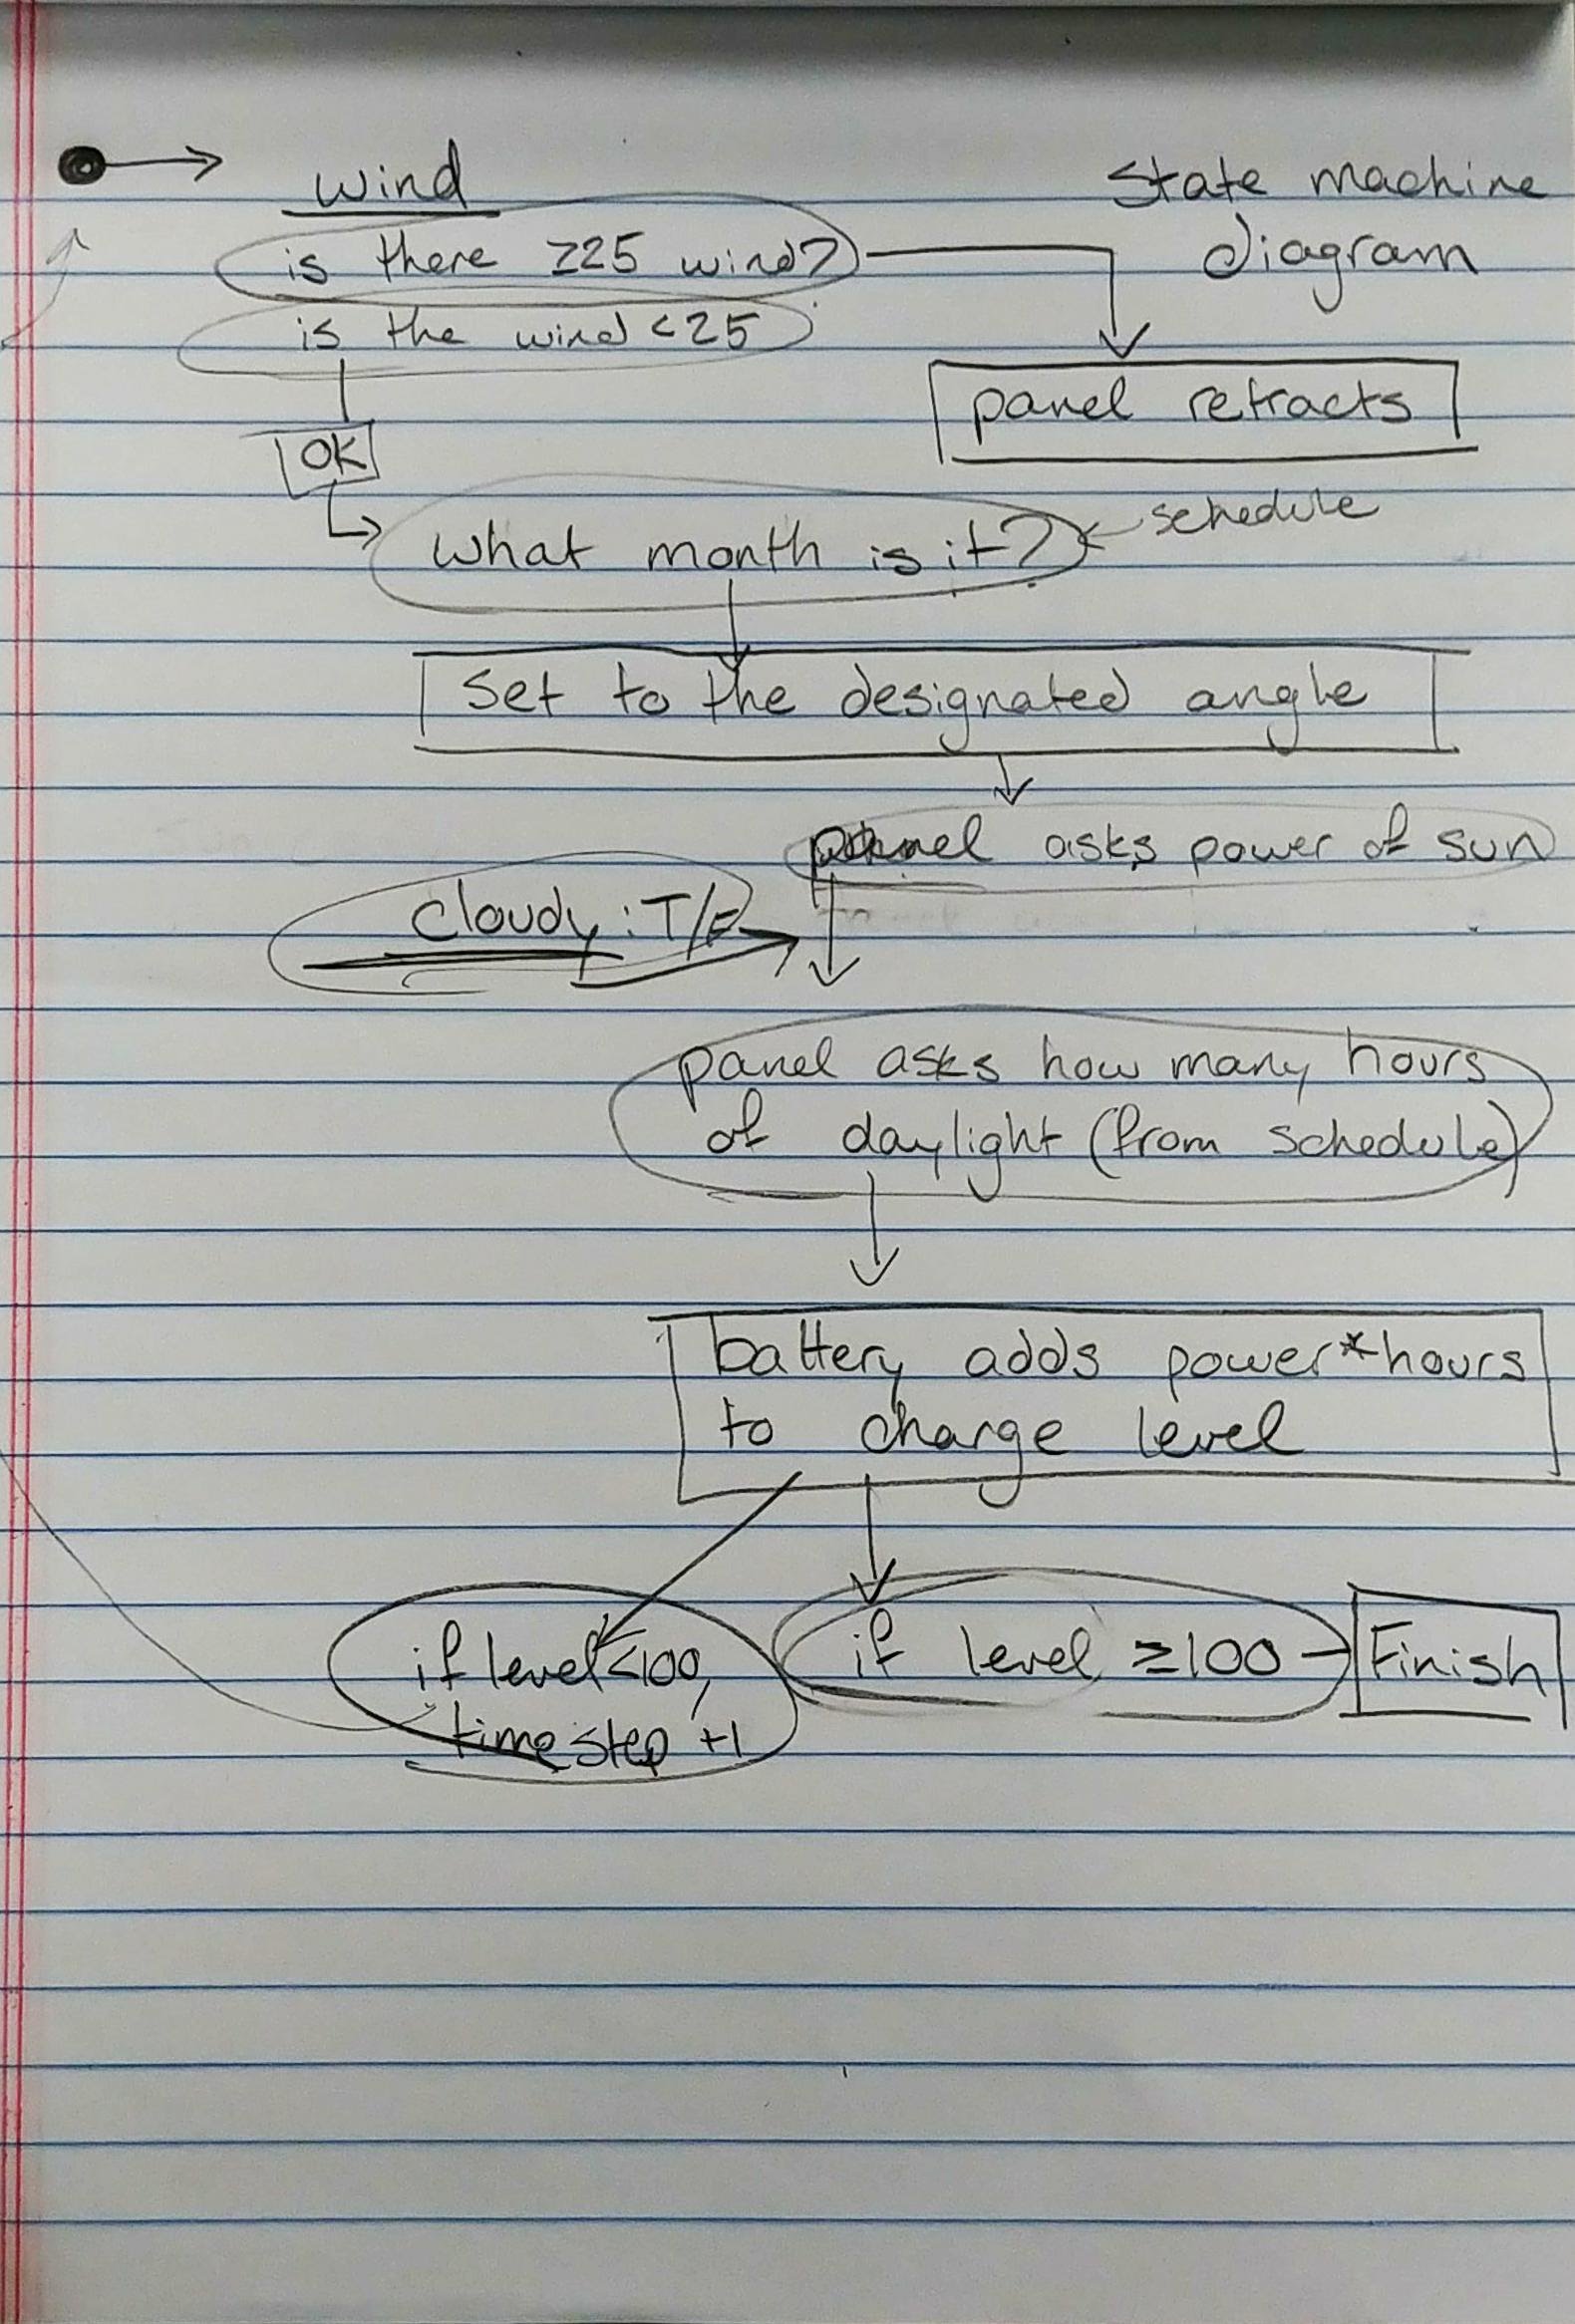 wind
State machine
diagram
is there ≥25 wind?
is the wind <25
panel retracts
OK
schedule
what month is it?
Set to the designated angle
panel asks power of sun
cloudy : T/F
panel asks how many hours
of daylight (from schedule)
battery adds power*hours
to charge level
if level <100,
time step +1
if level ≥100
Finish